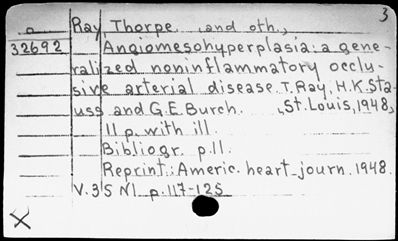 3
a Ray, Thorpe. and oth.,
32692 Angiomesohyperplasia: a gene-
ralized noninflammatory occlu-
sive arterial disease. T. Ray, H.K. Sta-
uss and G.E. Burch. , St. Louis, 1948,
11 p. with ill.
Bibliogr. p. 11.
Reprint.: Americ. heart journ. 1948.
V. 35 N1 p. 117-125